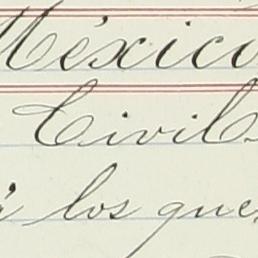 México
Civil
á los que